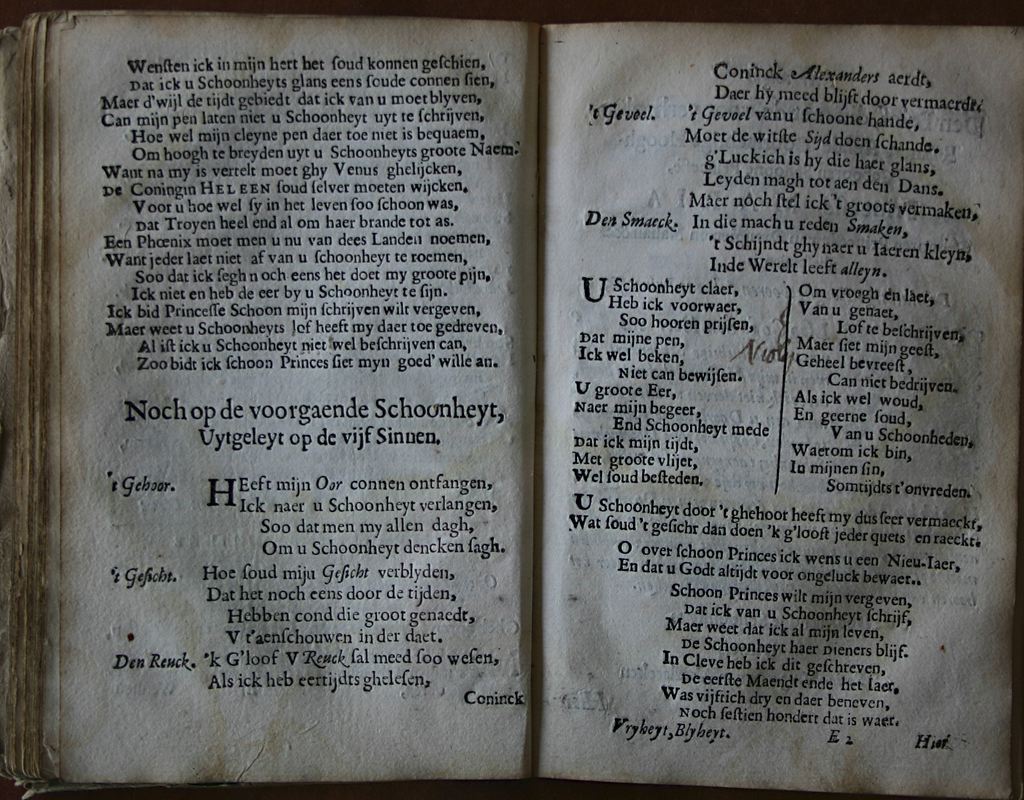 Wensten ick in mijn hert het soud konnen geschien,
Dat ick u Schoonheyts glans eens soude connen sien,
Maer d'wijl de tijdt gebiedt dat ick van u moet blyven,
Can mijn pen laten niet u Schoonheyt uyt te schrijven,
Hoe wel mijn cleyne pen daer toe niet is bequaem,
Om hoogh te breyden uyt u Schoonheyts groote Naem:
Want na my is vertelt moet ghy Venus ghelijcken,
De Coningin HELEEN soud selver moeten wijcken,
Voor u hoe wel sy in het leven soo schoon was,
Dat Troyen heel end al om haer brande tot as.
Een Phœnix moet men u nu van dees Landen noemen,
Want jeder laet niet af van u schoonheyt te roemen,
Soo dat ick segh noch eens het doet my groote pijn,
Ick niet en heb de eer by u Schoonheyt te sijn.
Ick bid Princesse Schoon mijn schrijven wilt vergeven,
Maer weet u Schoonheyts lof heeft my daer toe gedreven,
Al ist ick u Schoonheyt niet wel beschrijven can,
Zoo bidt ick schoon Princes siet myn goed' wille an.
Noch op de voorgaende Schoonheyt,
Uytgeleyt op de vijf Sinnen.
't Gehoor. HEeft mijn Oor connen ontfangen,
Ick naer u Schoonheyt verlangen,
Soo dat men my allen dagh,
Om u Schoonheyt dencken sagh.
't Gesicht. Hoe soud mijn Gesicht verblyden,
Dat het noch eens door de tijden,
Hebben cond die groot genaedt,
V t'aenschouwen in der daet.
Den Reuck. 'k G'loof V Reuck sal meed soo wesen,
Als ick heb eertijdts ghelesen,
Coninck
Coninck Alexanders aerdt,
Daer hy meed blijft door vermaerdt.
't Gevoel. 't Gevoel van u schoone hande,
Moet de witste Syd doen schande.
g'Luckich is hy die haer glans,
Leyden magh tot aen den Dans.
Maer noch stel ick 't groots vermaken,
Den Smaeck. In die mach u reden Smaken,
't Schijndt ghy naer u Iaeren kleyn,
Inde Werelt leeft alleyn.
U Schoonheyt claer,
Heb ick voorwaer,
Soo hooren prijsen,
Dat mijne pen,
Ick wel beken,
Niet can bewijsen.
U groote Eer,
Naer mijn begeer,
End Schoonheyt mede
Dat ick mijn tijdt,
Met groote vlijet,
Wel soud besteden.
Om vroegh en laet,
Van u genaet,
Lof te beschrijven,
Maer siet mijn geest,
Geheel bevreest,
Can niet bedrijven.
Als ick wel woud,
En geerne soud,
Van u Schoonheden,
Waerom ick bin,
In mijnen sin,
Somtijdts t'onvreden.
U Schoonheyt door 't ghehoor heeft my dus seer vermaeckt,
Wat soud 't gesichr dan doen 'k g'looft jeder quets en raeckt.
O over schoon Princes ick wens u een Nieu-Iaer,
En dat u Godt altijdt voor ongeluck bewaer..
Schoon Princes wilt mijn vergeven,
Dat ick van u Schoonheyt schrijf,
Maer weet dat ick al mijn leven,
De Schoonheyt haer Dieners blijf.
In Cleve heb ick dit geschreven,
De eerste Maendt ende het Iaer,
Was vijftich dry en daer beneven,
Noch sestien hondert dat is waer.
Vryheyt, Blyheyt.
E 2
Hier